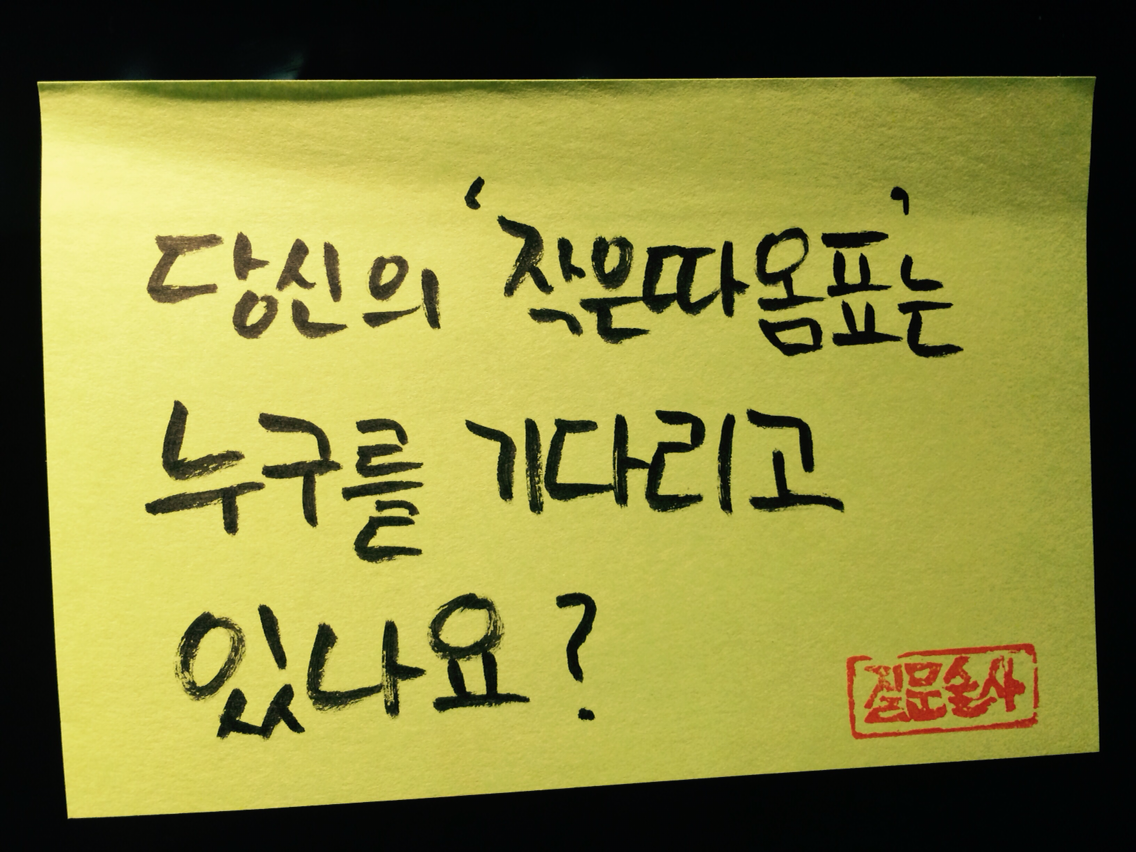 당신의 '작은따옴표'는
누구를 기다리고
있나요?
질문술사